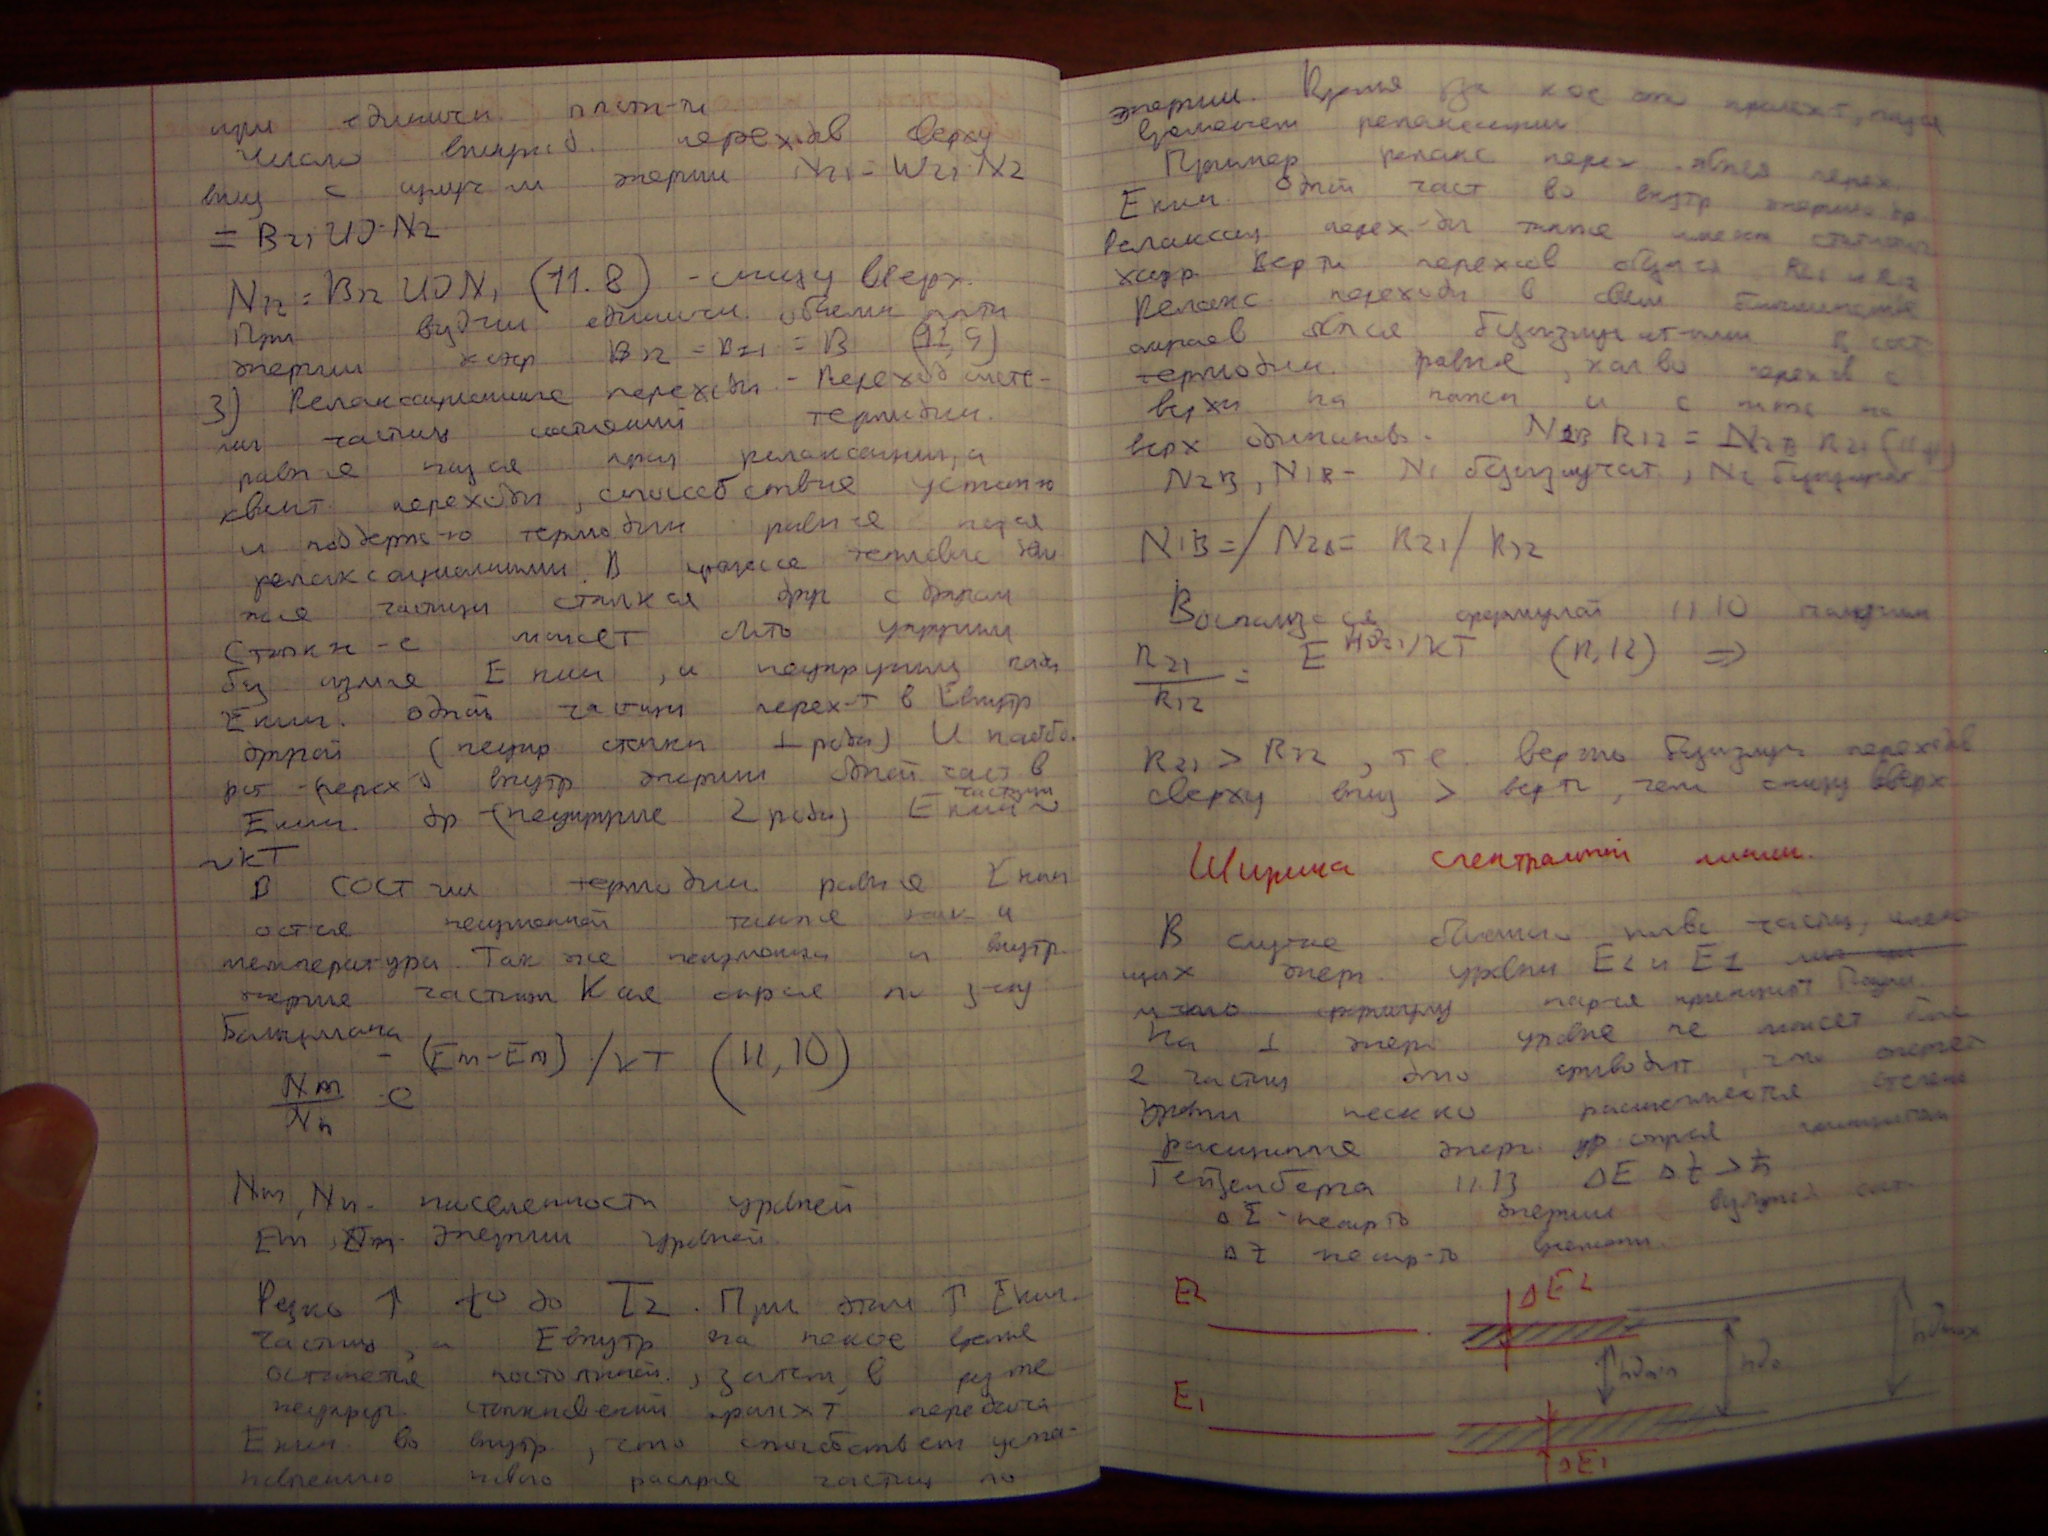 при единичн. плотн-ти
Число вынужд. переходов сверху
вниз с излуч-м энергии N21 = W21·N2
= B21 UД·N2
N12 = B12 UДN1 (11.8) - снизу вверх.
При единичн. объемн плотн
энергии хар B12 = B21 = B (11,9)
3) Релаксационные переходы. - Переход систе-
мы частиц состояний термодин.
равн-я наз-ся проц релаксации, а
квант. переходы, способствие устан-ю
и поддерж-ю термодин равн-я наз-ся
релаксационными. В процессе теплово дви
жея частицы сталк-ся друг с другом
Столкн-е может быть упругим
без измен-я Е кин, и неупругим когда
Е кин. одной частицы перех-т в Евнутр
другой (неупр столкн 1 рода) И наобо-
рот - переход внутр энергии одной част в
Е кин. др - (неупругие 2 рода) Е кин частицы ~
~ kT
В сост-ии термодин. равн-я Екин
остся неизменной также как и
температура. Так же неизменна и внутр.
энергия частицы Кая опр-ся по з-ну
Больцмана
Nm/Nn = e -(Em-En)/kT (11,10)
Nm, Nn - населенность уровней
Em, En - энергии уровней.
Резко ↑ t° до T2. При этом ↑ Екин.
частиц, а Евнутр на некое время
останется постоянной, затем, в рез-те
неупруг. столкновений произ-т передача
Екин во внутр, что способствует уста-
новлению нового распр-я частиц по
энергии. Время за кое это произ-т, наз-ся
временем релаксации
Пример релакс перех явл-ся перех
Е кин. одной част во внутр энергию др
Релаксац перех-ды также имеют статист
хар. Верть переходов обозн R21 и R12
Релакс. переходы в своем большинстве
случаев явл-ся безизлучат-ыми В сост
термодин. равн-я, кол-во перех-в с
верху на низ и с низа на
верх одинаково. N1B R12 = N2B R21 (11,11)
N2B, N1B - N1 безизлучат., N2 безизлучат
N1B = / N2B = R21 / R12
Воспользуемся формулой 11.10 получим
R21/R12 = E HД21/kT (11,12) ⇒
R21 > R12, т.е. верть безизлуч переходов
сверху вниз > верть, чем снизу вверх
Ширина спектральной линии.
В случае большого кол-ва частиц, имею
щих энерг. уровни E2 и E1
принцип Паули
На 1 энерг уровне не может быть
2 частиц это приводит, что энергет
уровни неск-ко расщепляются степень
расщепления энерг. ур опр-ся принципом
Гейзенберга 11.13 ΔE Δt > ħ
ΔE - неопр-ть энергии возбужд сост.
Δt неопр-ть времени.
E2 ΔE2
hДmin hД0 hДmax
E1 ΔE1